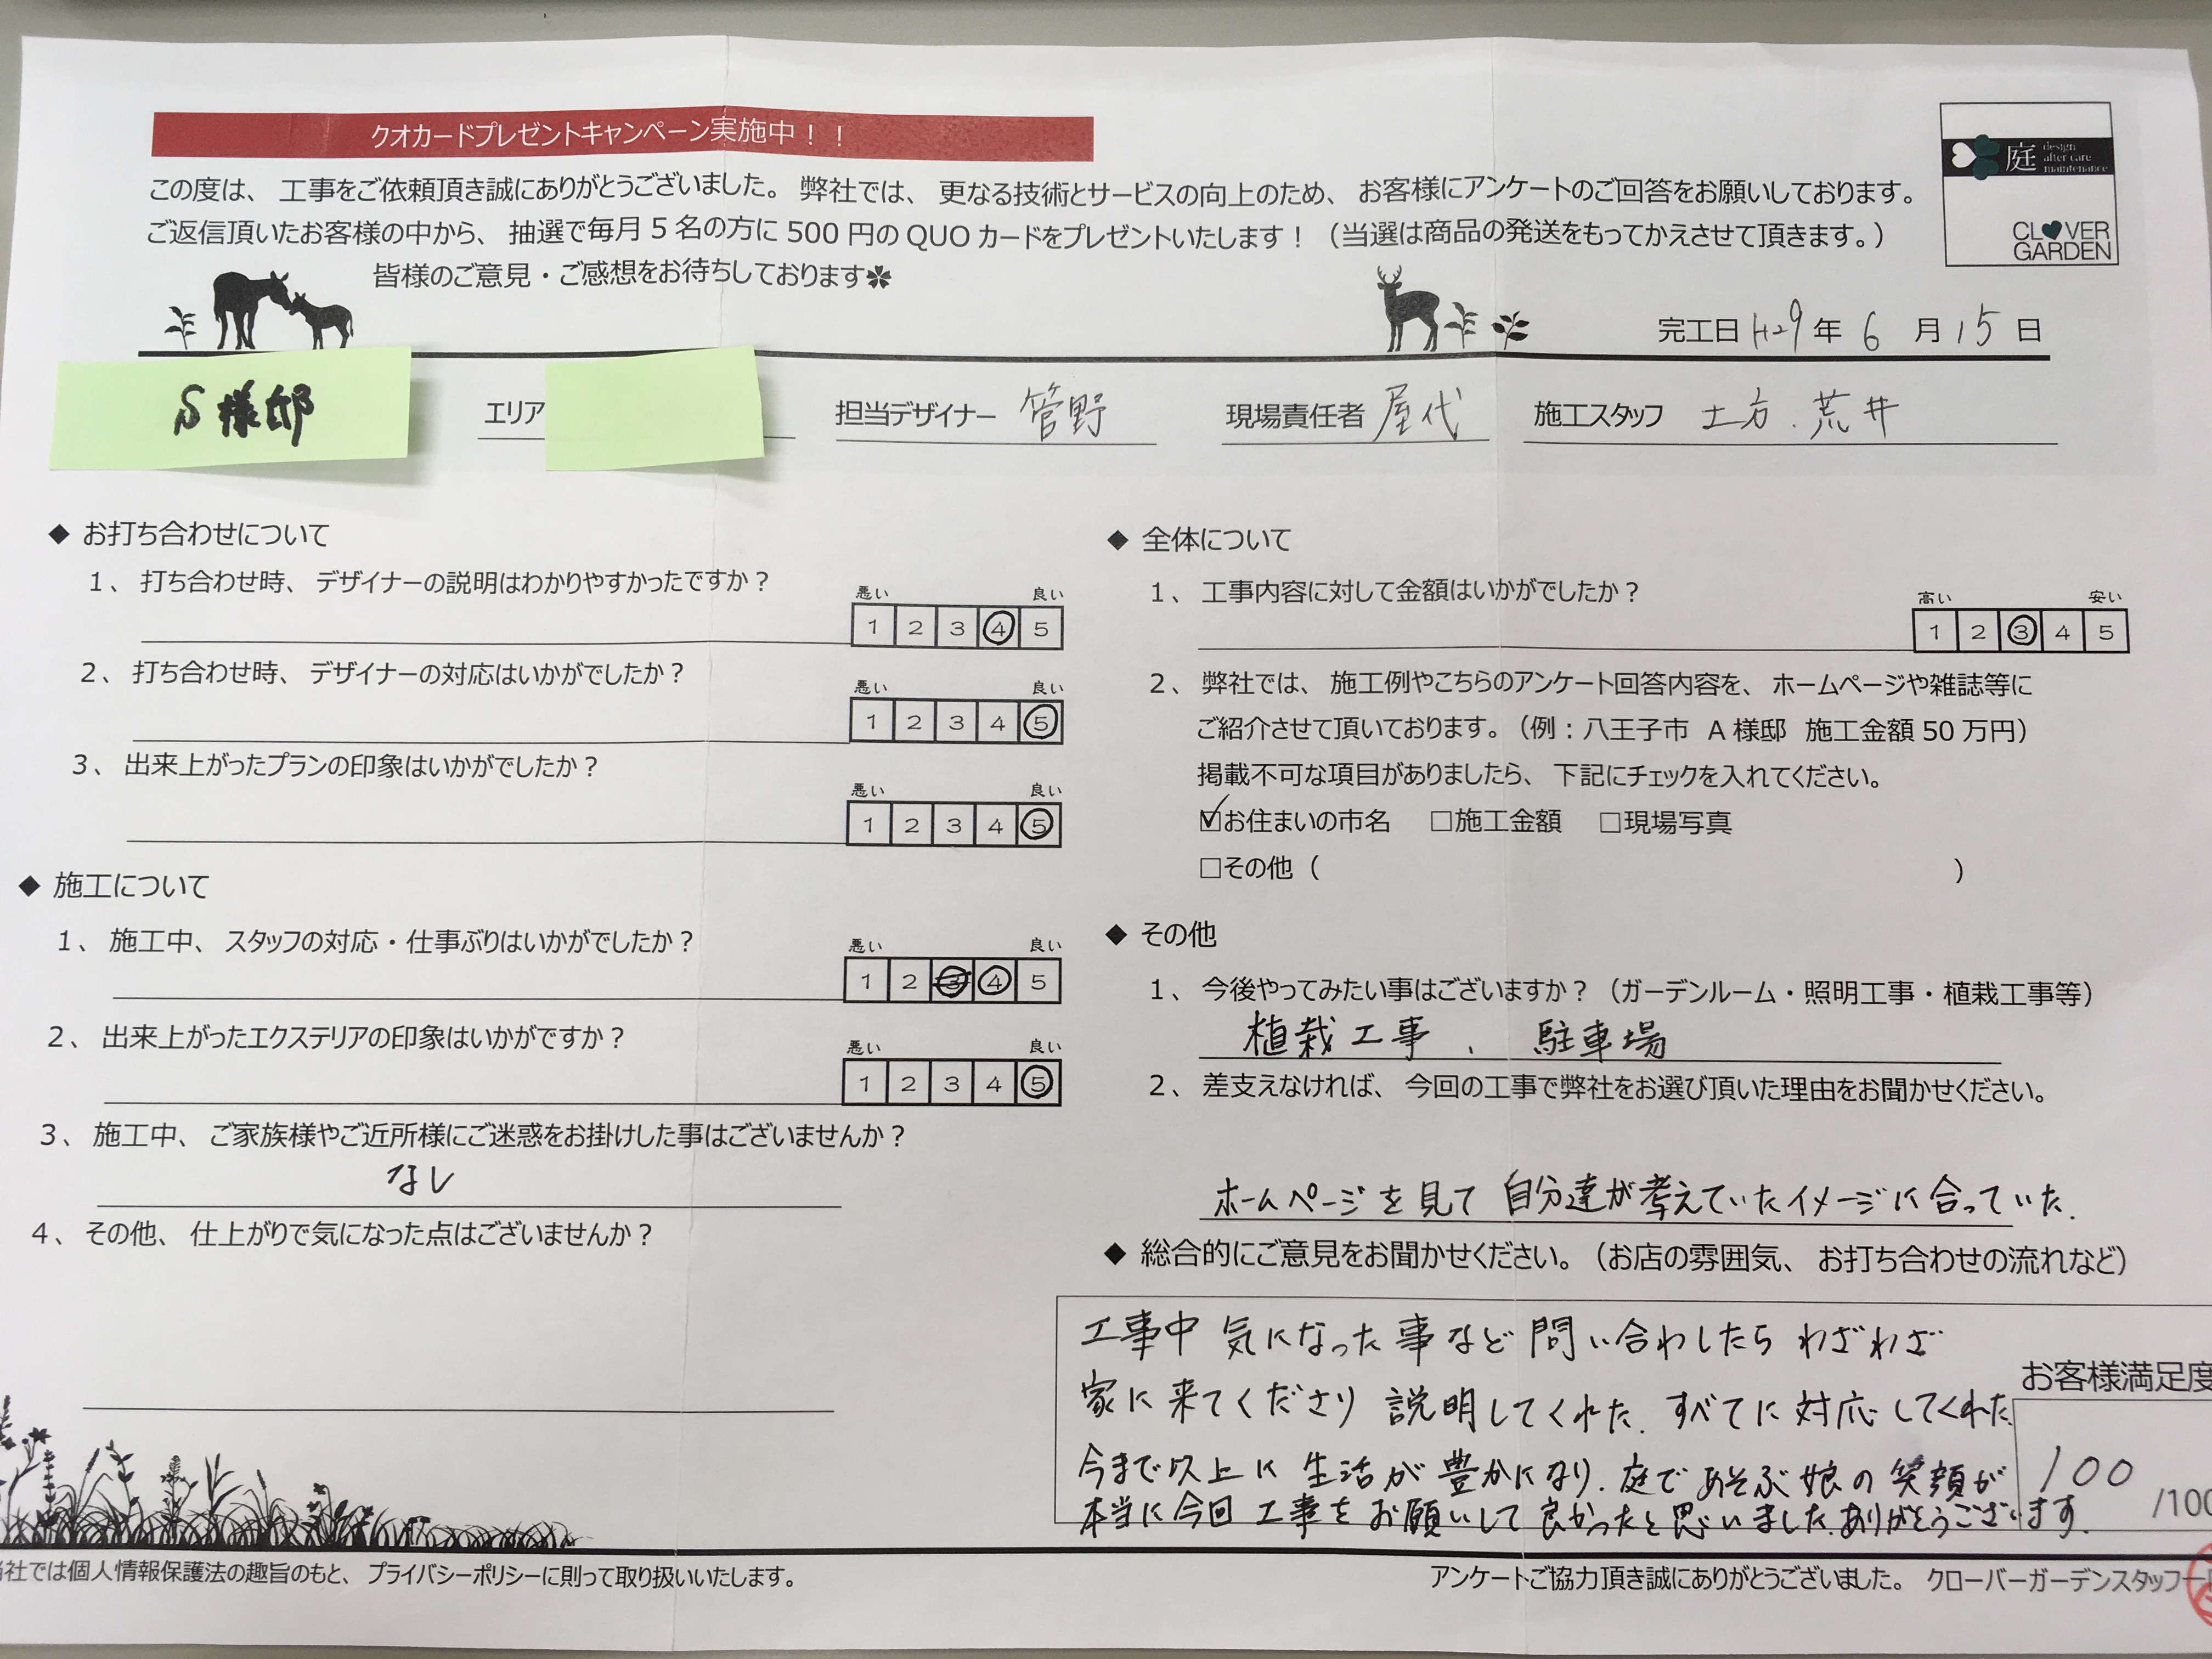 クオカードプレゼントキャンペーン実施中！！
庭 design after care maintenance
CLOVER GARDEN
この度は、工事をご依頼頂き誠にありがとうございました。弊社では、更なる技術とサービスの向上のため、お客様にアンケートのご回答をお願いしております。
ご返信頂いたお客様の中から、抽選で毎月5名の方に500円のQUOカードをプレゼントいたします！（当選は商品の発送をもってかえさせて頂きます。）
皆様のご意見・ご感想をお待ちしております✽
完工日 H29年 6 月 15 日
S様邸 エリア 担当デザイナー 管野 現場責任者 屋代 施工スタッフ 土方．荒井
◆ お打ち合わせについて
1、打ち合わせ時、デザイナーの説明はわかりやすかったですか？
悪い 良い
1 2 3 4 5
2、打ち合わせ時、デザイナーの対応はいかがでしたか？
悪い 良い
1 2 3 4 5
3、出来上がったプランの印象はいかがでしたか？
悪い 良い
1 2 3 4 5
◆ 施工について
1、施工中、スタッフの対応・仕事ぶりはいかがでしたか？
悪い 良い
1 2 3 4 5
2、出来上がったエクステリアの印象はいかがですか？
悪い 良い
1 2 3 4 5
3、施工中、ご家族様やご近所様にご迷惑をお掛けした事はございませんか？
なし
4、その他、仕上がりで気になった点はございませんか？
◆ 全体について
1、工事内容に対して金額はいかがでしたか？
高い 安い
1 2 3 4 5
2、弊社では、施工例やこちらのアンケート回答内容を、ホームページや雑誌等に
ご紹介させて頂いております。（例：八王子市 A様邸 施工金額50万円）
掲載不可な項目がありましたら、下記にチェックを入れてください。
☑お住まいの市名 □施工金額 □現場写真
□その他（ ）
◆ その他
1、今後やってみたい事はございますか？（ガーデンルーム・照明工事・植栽工事等）
植栽工事、駐車場
2、差支えなければ、今回の工事で弊社をお選び頂いた理由をお聞かせください。
ホームページを見て自分達が考えていたイメージに合っていた．
◆ 総合的にご意見をお聞かせください。（お店の雰囲気、お打ち合わせの流れなど）
工事中 気になった事など問い合わしたら わざわざ
家に来てくださり 説明してくれた．すべてに対応してくれた
今まで以上に生活が豊かになり．庭であそぶ娘の笑顔が
本当に今回工事をお願いして良かったと思いました．ありがとうございます．
お客様満足度
100 /100
社では個人情報保護法の趣旨のもと、プライバシーポリシーに則って取り扱いいたします。
アンケートご協力頂き誠にありがとうございました。 クローバーガーデンスタッフ一